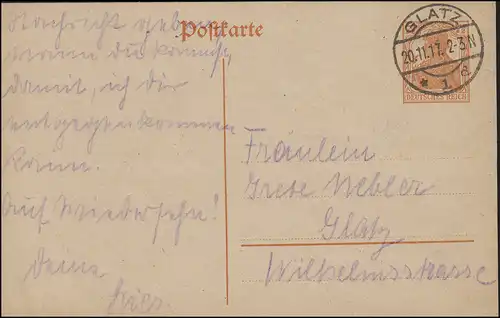 Nachricht geben
wann du kommst,
damit, ich dir
entgegenkommen
kann.
Auf Wiedersehn!
Deine
Postkarte
GLATZ
20.11.17. 2-3.N
* 1 d
DEUTSCHES REICH
Fräulein
Grete Nebler
Glatz
Wilhelmsstrasse